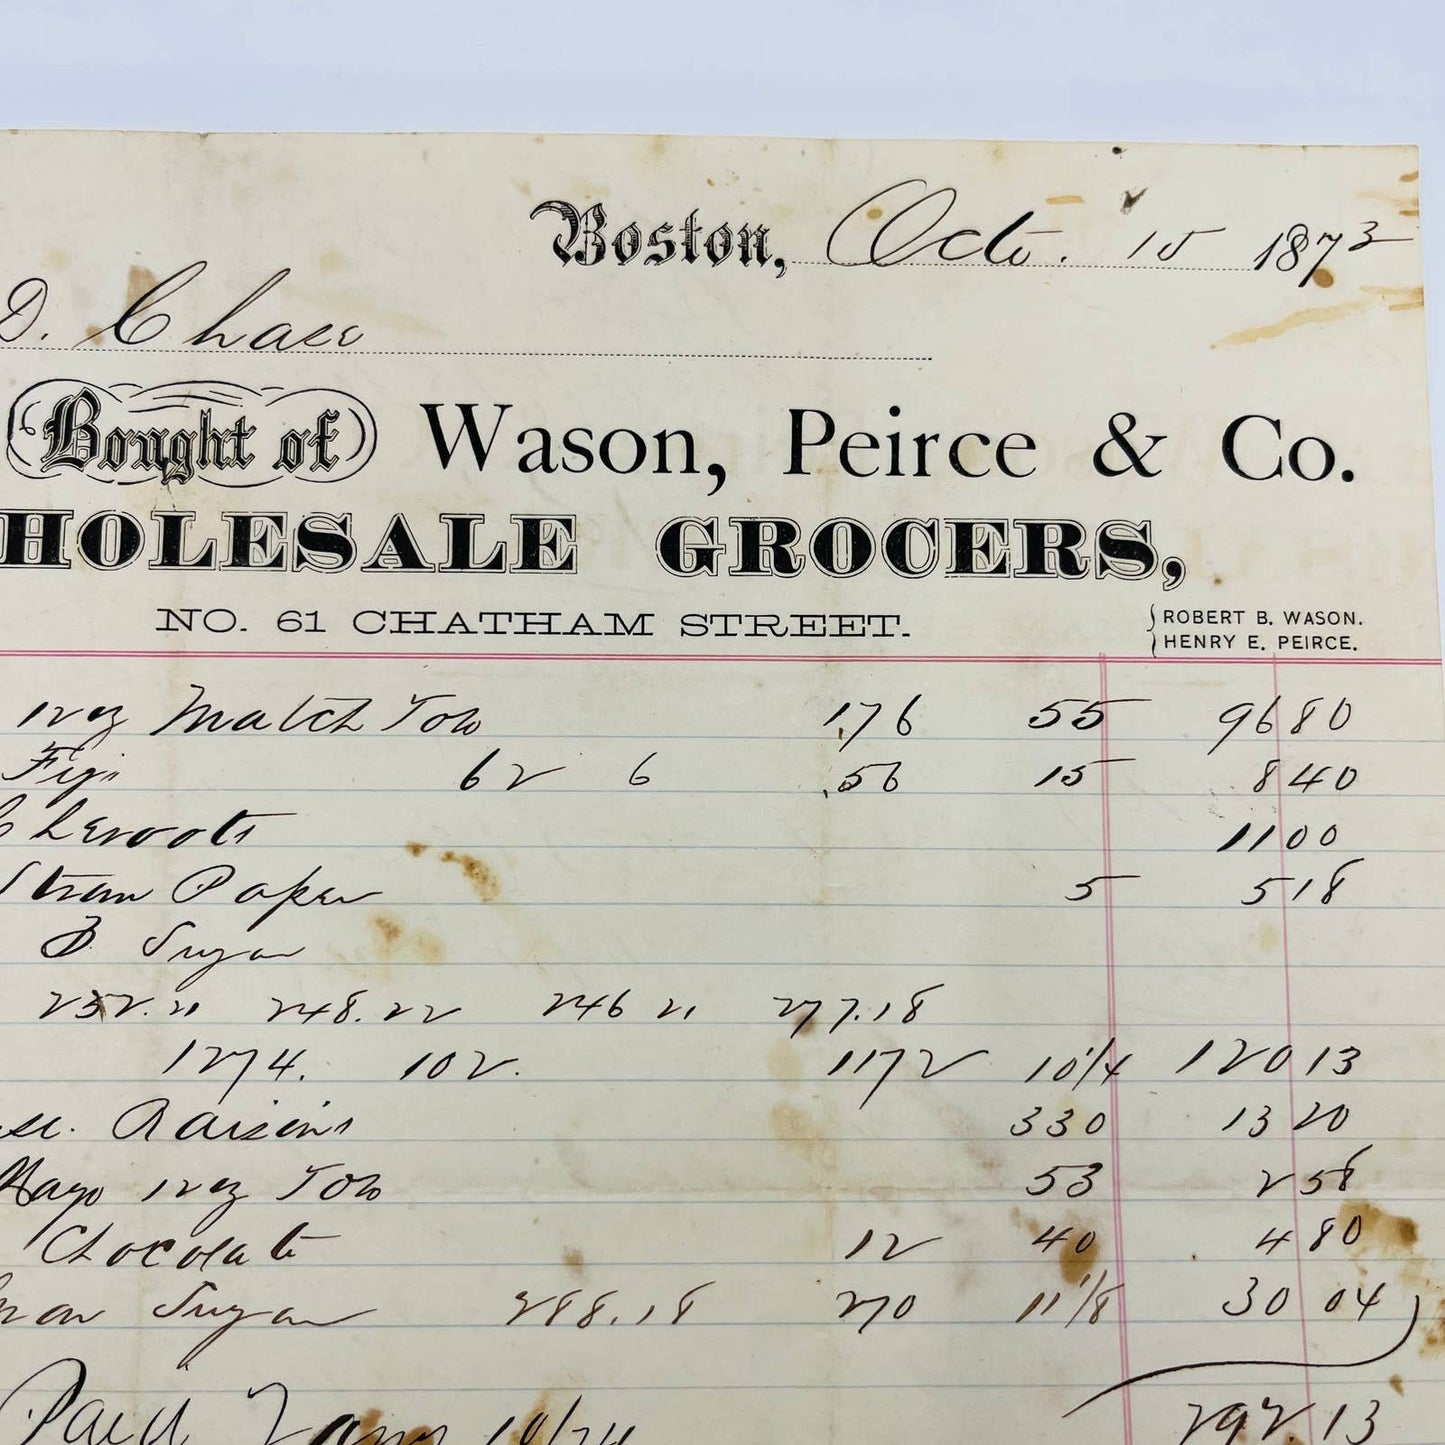 Boston, Octo. 15 1873
D. Chase
Bought of Wason, Peirce & Co.
HOLESALE GROCERS,
NO. 61 CHATHAM STREET.
ROBERT B. WASON.
HENRY E. PEIRCE.
Match Tob 176 55 96 80
Figs 62 6 56 15 8 40
Cheroots 11 00
Straw Paper 5 5 18
B Sugar
232.21 248.22 246 21 277.18
1274. 102. 1172 10 1/4 120 13
Raisins 330 13 20
Mayo Tob 53 2 58
Chocolate 12 40 4 80
Sugar 288.18 270 11 1/8 30 04
Paid 10/74 292.13